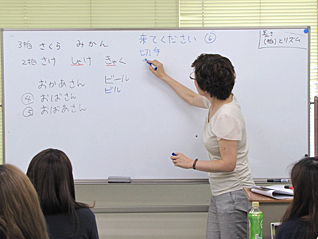 3拍 さくら みかん
2拍 さけ しゃけ きゃく
おかあさん
④ おばさん
⑤ おばあさん
ビール
ビル
来てください ⑥
切手
長さ
(拍)とリズム